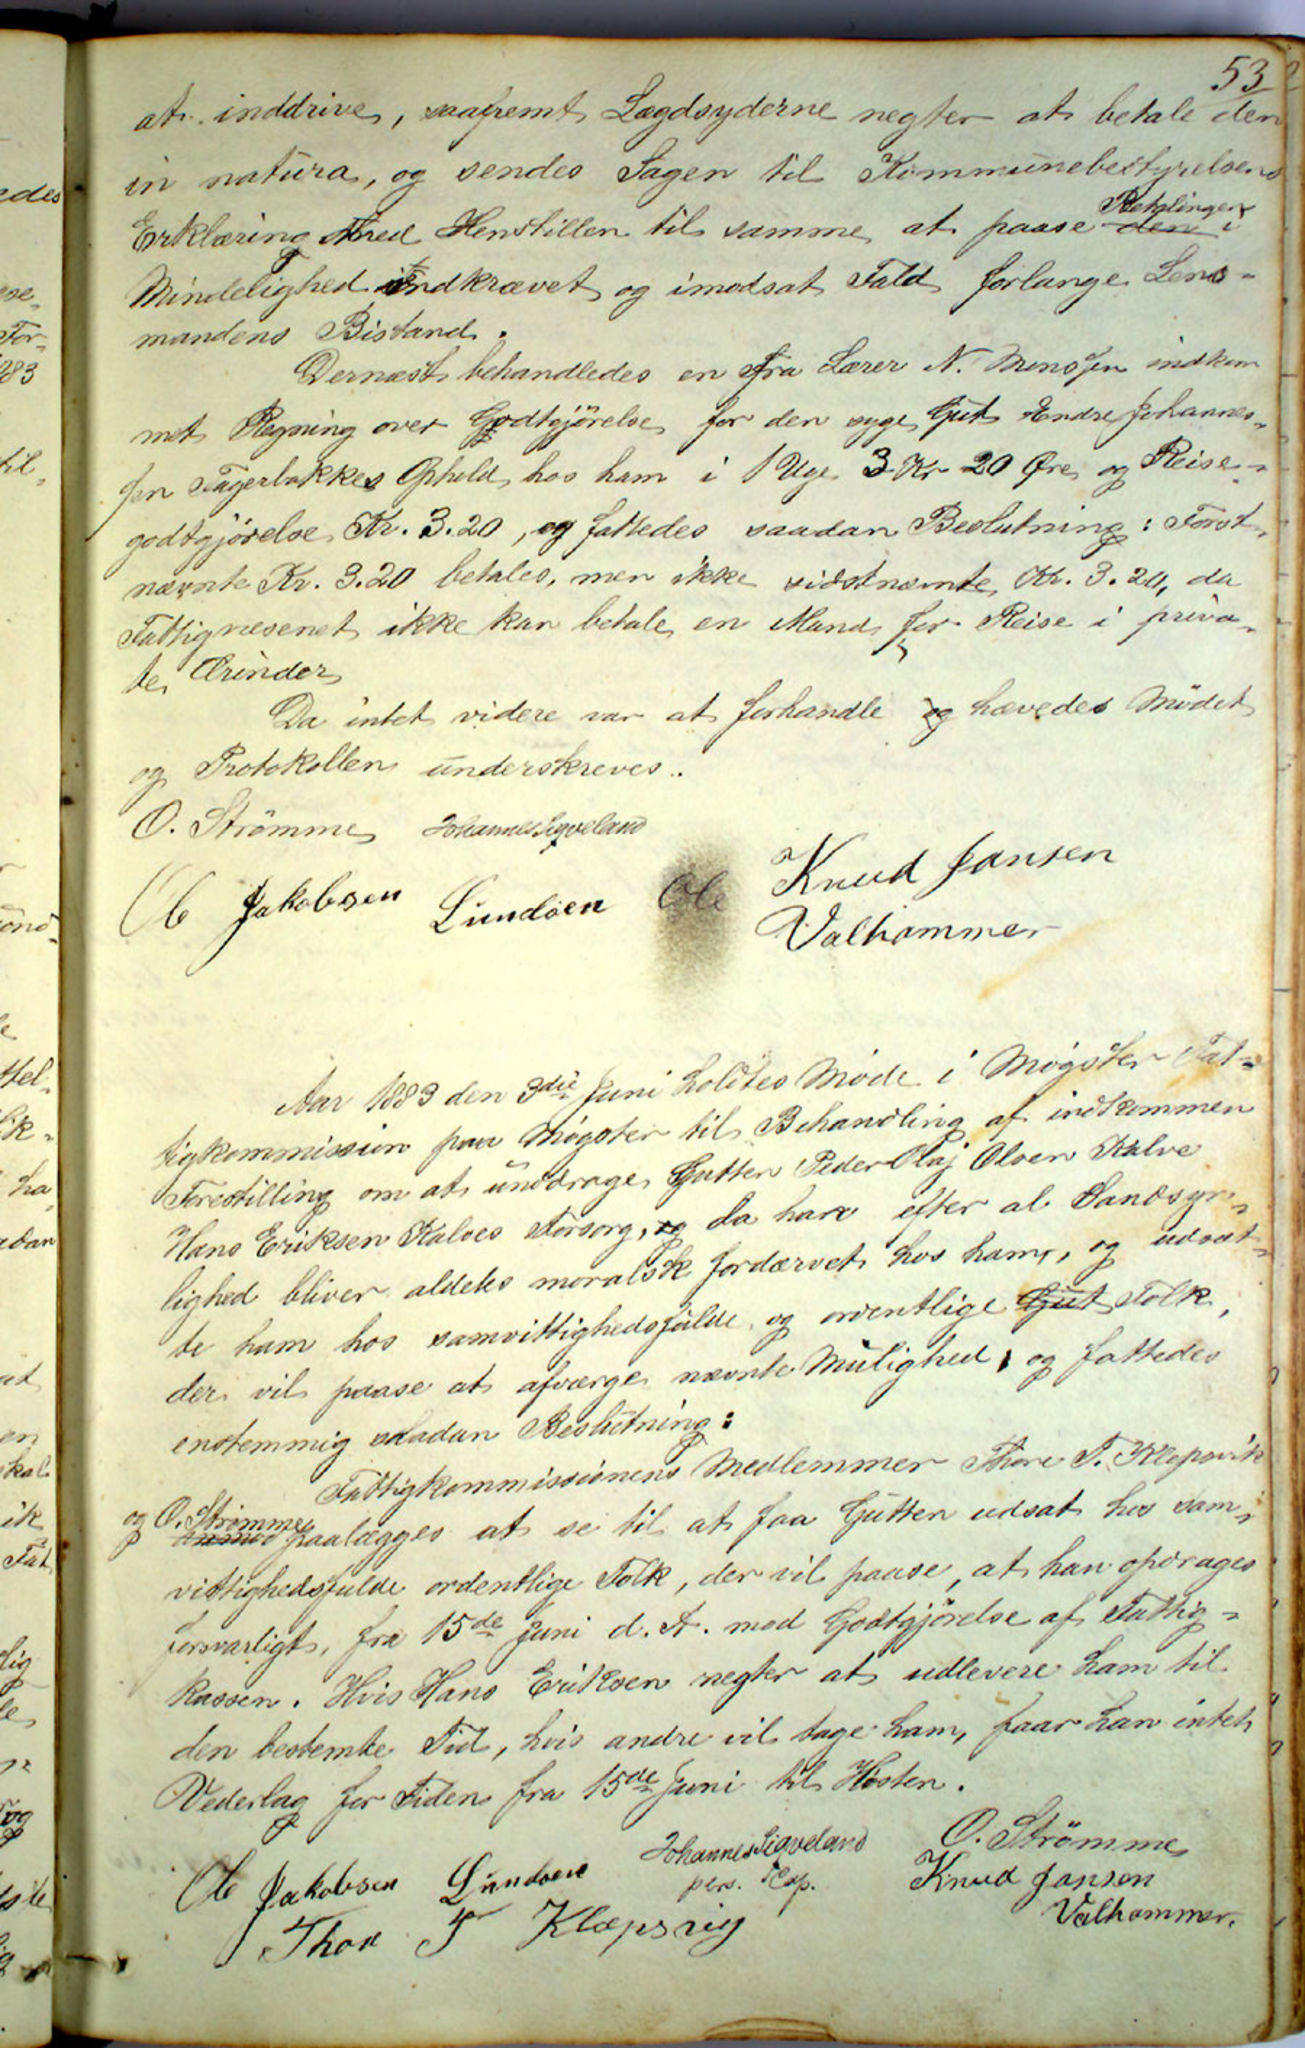 53
at inddrive, saafremt Lægdsyderne negter at betale den
in natura, og sendes Sagen til Kommunebestyrelsens
Erklæring med Henstillen til samme at paase Betalingen den i
Mindelighed indkrævet og imodsat Fald forlange Lens-
mandens Bistand.
Dernæst behandledes en fra Lærer N. Monssen indkom
met Regning over Godtgjörelse for den syge Gut Endre Johannes-
sen Fagerbakkes Ophold hos ham i 1 Uge 3 Kr 20 Øre og Reise-
godtgjörelse Kr. 3.20, og fattedes saadan Beslutning: Först-
nævnte Kr. 3.20 betales, men ikke sidstnævnte Kr. 3.20, da
Fattigvesenet ikke kan betale en Mand for Reise i priva-
te Ærinder
Da intet videre var at forhandle og hævedes Mödet
og Protokollen underskreves.
O. Strömme Johannes Sigveland
Ole Jakobsen Lundöen Ole Knud Jansen
Valhammer
Aar 1883 den 3die Juni holdtes Møde i Møgster Fat-
tigkommission paa Møgster til Behandling af indkommen
Forestilling om at unddrage Gutten Peder Olaj Olsen Kalve
Hans Eriksen Kalves Forsorg, og da han efter al Sandsyn-
lighed bliver aldeles moralsk fordærvet hos ham, og udsæt-
te ham hos samvittighedsfulde og ordentlige Gut Folk,
der vil paase at afværge nævnte Mulighed, og fattedes
enstemmig saadan Beslutning:
Fattigkommissionens Medlemmer Thore T. Klepsvik
og O. Strømme anmod paalægges at se til at faa Gutten udsat hos sam-
vittighedsfulde ordentlige Folk, der vil paase, at han opdrages
forsvarligt, fra 15de Juni d. A. mod Godtgjörelse af Fattig-
kassen. Hvis Hans Eriksen negter at udlevere ham til
den bestemte Tid, hvis andre vil tage ham, faar han intet
Vederlag for Tiden fra 15de Juni til Høsten.
Johannes Sigveland O. Strömme
Ole Jakobsen Lundöen pers. Kap. Knud Jansen
Thor T Klæpsvig Valhammer.